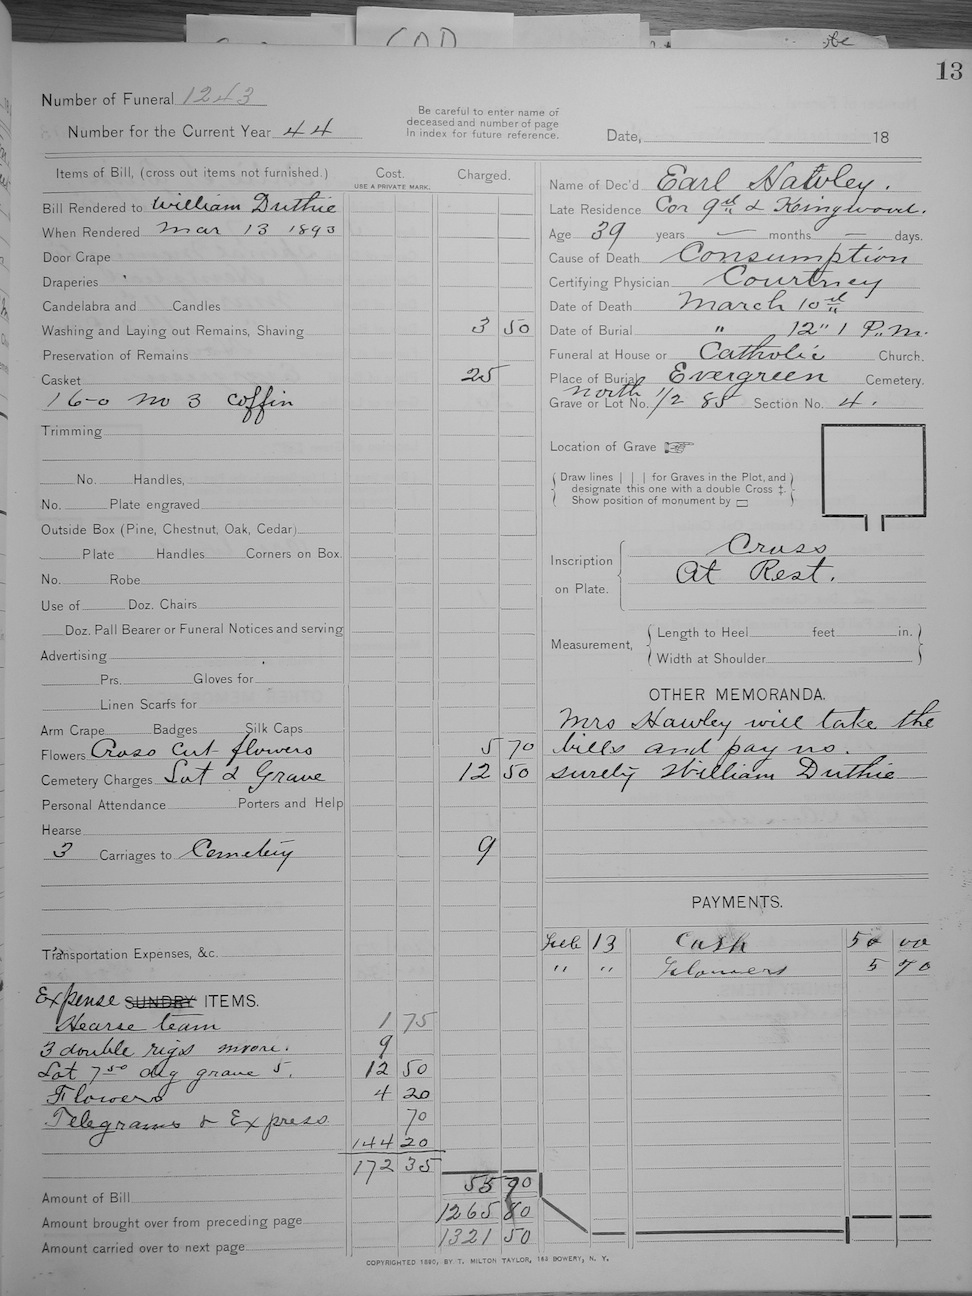 COD
be
13
Number of Funeral 1243
Number for the Current Year 44
Be careful to enter name of
deceased and number of page
in index for future reference.
Date, 18
Items of Bill, (cross out items not furnished.) Cost. Charged.
USE A PRIVATE MARK.
Bill Rendered to William Duthie
When Rendered Mar 13 1893
Door Crape
Draperies
Candelabra and Candles
Washing and Laying out Remains, Shaving 3 50
Preservation of Remains
Casket 25
16-0 No 3 Coffin
Trimming
No. Handles,
No. Plate engraved
Outside Box (Pine, Chestnut, Oak, Cedar)
Plate Handles Corners on Box
No. Robe
Use of Doz. Chairs
Doz. Pall Bearer or Funeral Notices and serving
Advertising
Prs. Gloves for
Linen Scarfs for
Arm Crape Badges Silk Caps
Flowers Cross Cut flowers 5 70
Cemetery Charges Lot & Grave 12 50
Personal Attendance Porters and Help
Hearse
3 Carriages to Cemetery 9
Transportation Expenses, &c.
Expense SUNDRY ITEMS.
Hearse team 1 75
3 double rigs 9
Lot 7 50 dig grave 5. 12 50
Flowers 4 20
Telegrams & Express 70
144 20
172 35
Amount of Bill 55 70
Amount brought over from preceding page 1265 80
Amount carried over to next page 1321 50
Name of Dec'd Earl Hawley.
Late Residence Cor 9th & Kingwood.
Age 39 years — months — days.
Cause of Death Consumption
Certifying Physician Courtney
Date of Death March 10th
Date of Burial " 12" 1 P.M.
Funeral at House or Catholic Church.
Place of Burial Evergreen Cemetery.
Grave or Lot No. North 1/2 85 Section No. 4.
Location of Grave ☞
(Draw lines | | | for Graves in the Plot, and
designate this one with a double Cross ‡.
Show position of monument by ▭)
Inscription on Plate.
Cross
At Rest.
Measurement, Length to Heel feet in.
Width at Shoulder
OTHER MEMORANDA.
Mrs Hawley will take the
bills and pay no.
surely William Duthie
PAYMENTS.
13 Cash 50 00
" " Flowers 5 70
COPYRIGHTED 1890, BY T. MILTON TAYLOR, 163 BOWERY, N. Y.